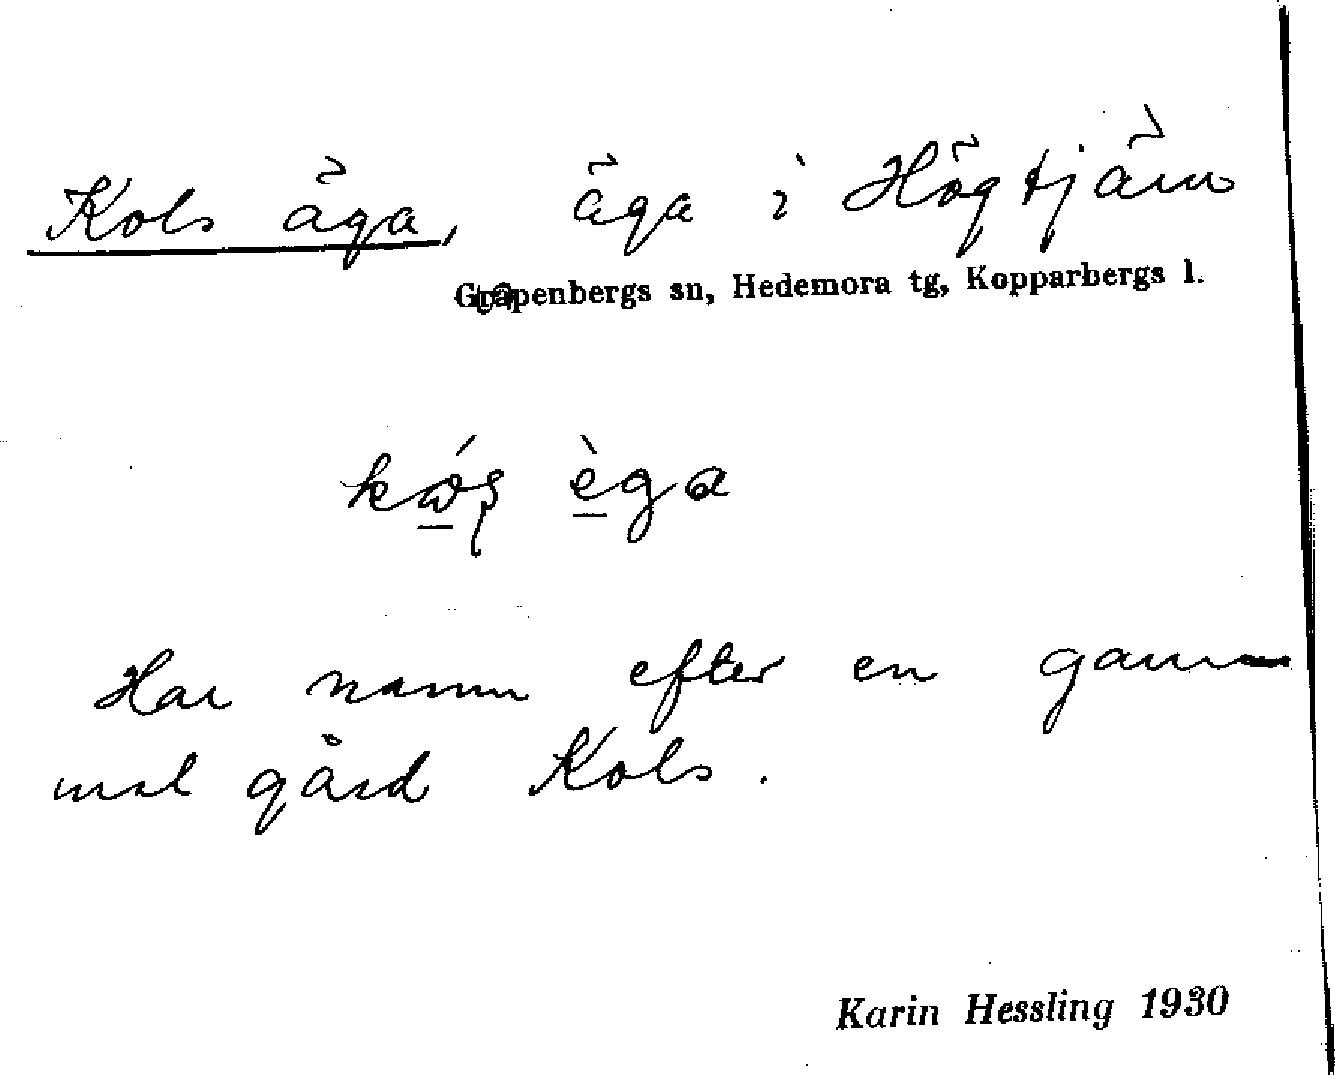 Kols äga, äga i Högtjärn
Garpenbergs sn, Hedemora tg, Kopparbergs l.
èga
Har namn efter en gam-
mal gård Kols.
Karin Hessling 1930